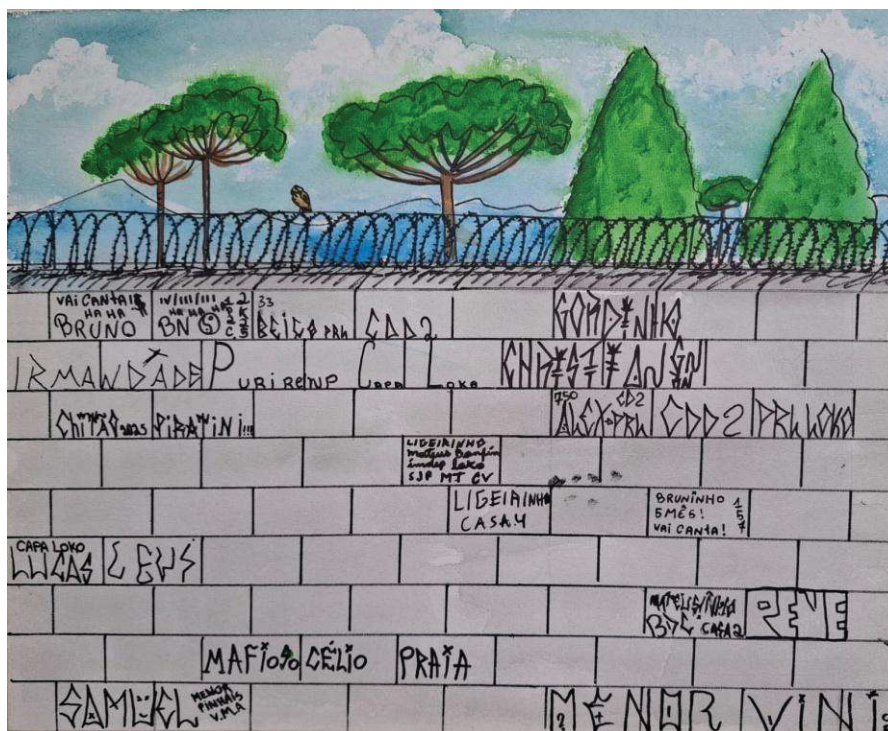 VAI CANTAR
HA HA
BRUNO
IV/III/III
HA HA HA
BN
33
BEIÇO PRL
CDD2
GORDINHO
IRMANDADE
PURIRENP
CAPA LOKA
CHRISTIAN
CHITÃO 2025
PIRATINI!!!
750
CD2
ALEX-PRL
CDD2
PRL LOKO
LIGEIRINHO
mateus Bonfim
indep loko
SJP MT CV
LIGEIRINHO
CASA.4
BRUNINHO
5 MÊS!
VAI CANTA!
1
5
7
CAPA LOKO
LUCAS
MATEUSINHO
BDC CASA 2
MAFIO%
CÉLIO
PRAIA
SAMUEL
MENOR
PINHAIS
V.M.A
MENOR VINI